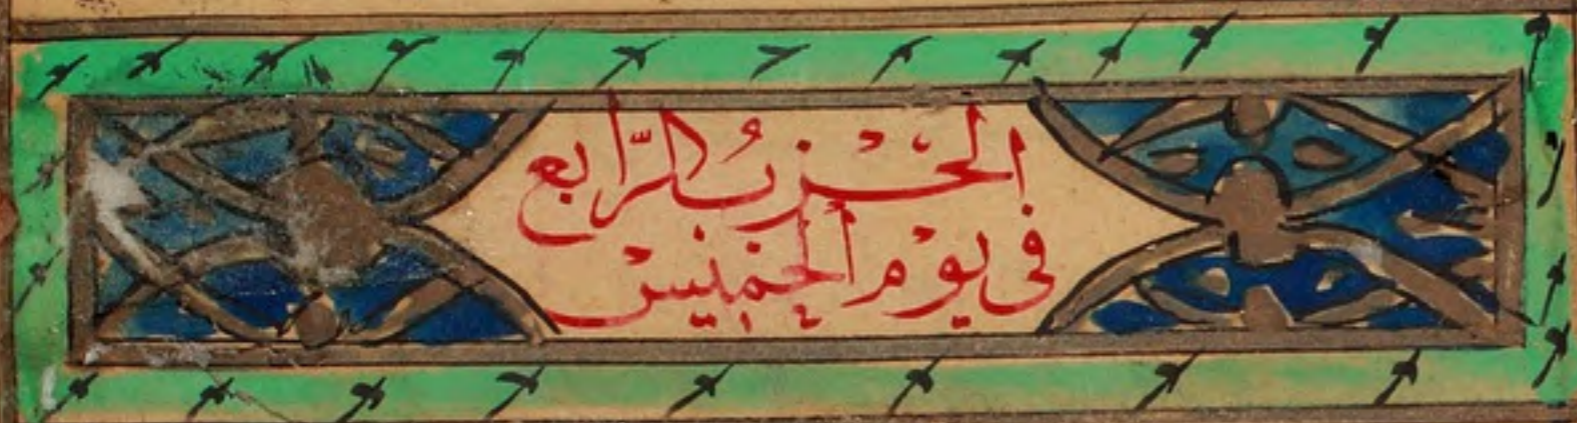 الحزب الرابع
في يوم الخميس